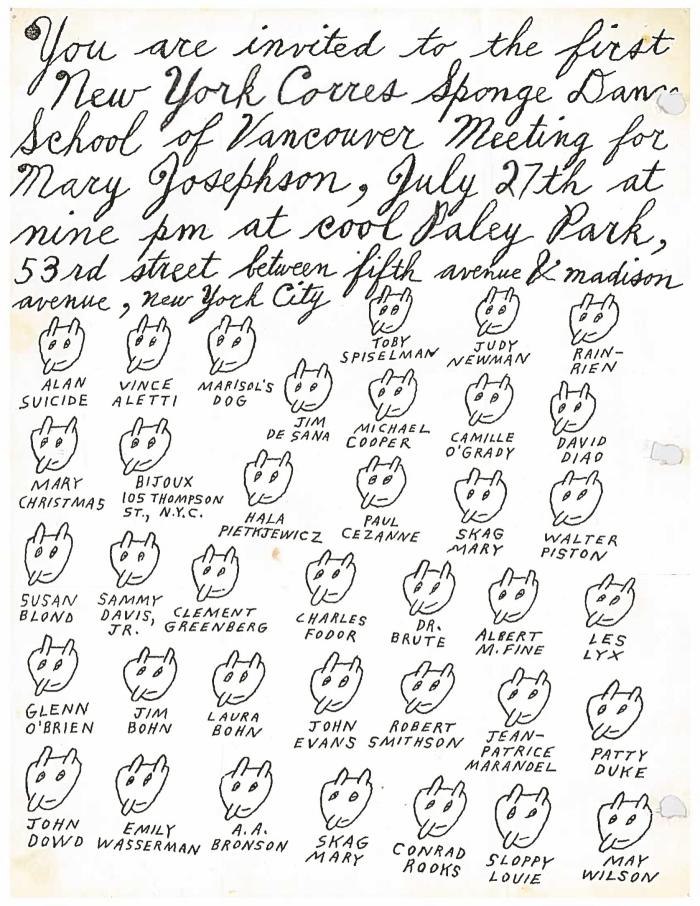 You are invited to the first
New York Corres Sponge Dance
School of Vancouver Meeting for
Mary Josephson, July 27th at
nine pm at cool Paley Park,
53rd street between fifth avenue & madison
avenue, new York City
TOBY
SPISELMAN
JUDY
NEWMAN
RAIN-
RIEN
ALAN
SUICIDE
VINCE
ALETTI
MARISOL'S
DOG
JIM
DE SANA
MICHAEL
COOPER
CAMILLE
O'GRADY
DAVID
DIAO
MARY
CHRISTMAS
BIJOUX
105 THOMPSON
ST., N.Y.C.
HALA
PIETKJEWICZ
PAUL
CEZANNE
SKAG
MARY
WALTER
PISTON
SUSAN
BLOND
SAMMY
DAVIS,
JR.
CLEMENT
GREENBERG
CHARLES
FODOR
DR.
BRUTE
ALBERT
M. FINE
LES
LYX
GLENN
O'BRIEN
JIM
BOHN
LAURA
BOHN
JOHN
EVANS
ROBERT
SMITHSON
JEAN-
PATRICE
MARANDEL
PATTY
DUKE
JOHN
DOWD
EMILY
WASSERMAN
A.A.
BRONSON
SKAG
MARY
CONRAD
ROOKS
SLOPPY
LOUIE
MAY
WILSON